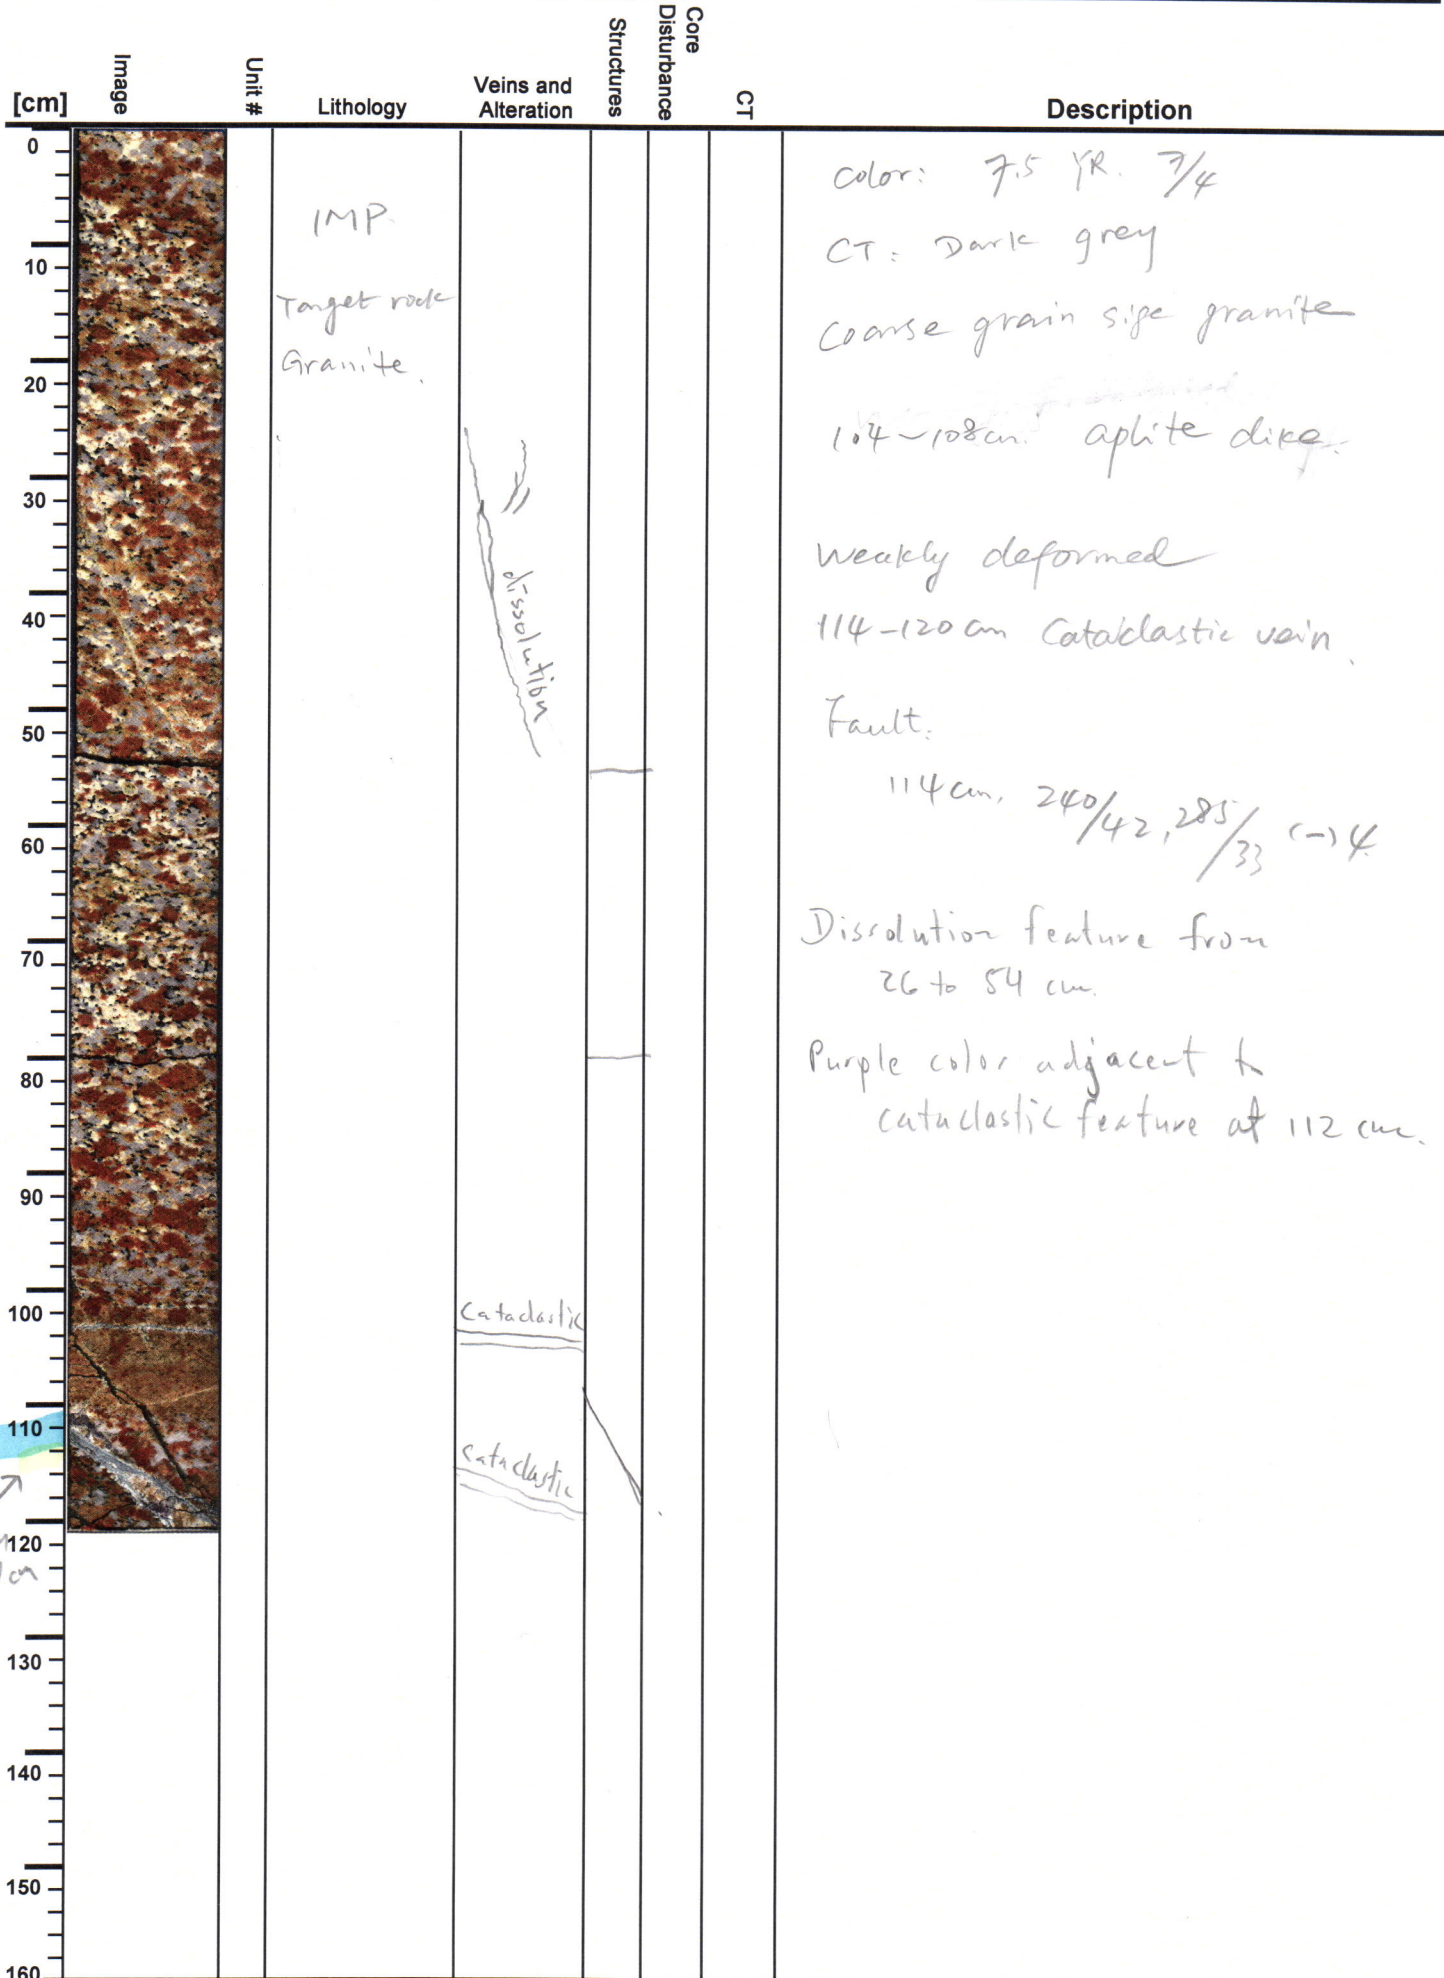 [cm]
Image
Unit #
Lithology
Veins and
Alteration
Structures
Core
Disturbance
CT
Description
0
10
20
30
40
50
60
70
80
90
100
110
120
130
140
150
160
IMP.
Target rock
Granite.
dissolution
Cataclastic
cataclastic
cm
Color: 7.5 YR. 7/4
CT: Dark grey
Coarse grain size granite
104~108cm. aplite dike.
Weakly deformed
114-120 cm Cataclastic vein.
Fault.
114 cm, 240/42, 285/33 (-) 4.
Dissolution feature from
26 to 54 cm.
Purple color adjacent to
cataclastic feature at 112 cm.